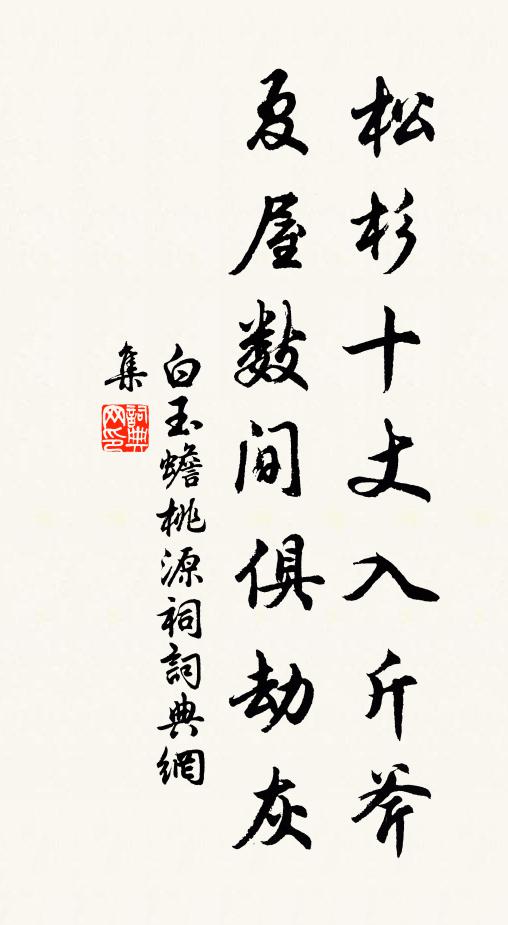 松杉十丈入斤斧
夏屋数间俱劫灰
白玉蟾桃源祠詞典網
集
詞典网印